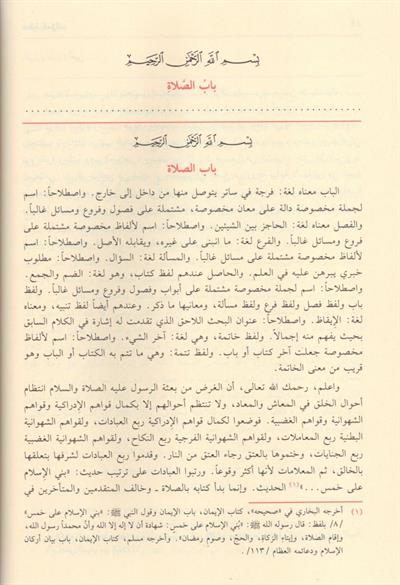 بِسْمِ اللَّهِ الرَّحْمَنِ الرَّحِيمِ
بابُ الصَّلاةِ
بِسْمِ اللَّهِ الرَّحْمَنِ الرَّحِيمِ
باب الصلاة
الباب معناه لغة: فرجة في ساتر يتوصل منها من داخل إلى خارج. واصطلاحاً: اسم
لجملة مخصوصة دالة على معان مخصوصة، مشتملة على فصول وفروع ومسائل غالباً.
والفصل معناه لغة: الحاجز بين الشيئين. واصطلاحاً: اسم لألفاظ مخصوصة مشتملة على
فروع ومسائل غالباً. والفرع لغة: ما انبنى على غيره، ويقابله الأصل. واصطلاحاً: اسم
لألفاظ مخصوصة مشتملة على مسائل غالباً. والمسألة لغة: السؤال. واصطلاحاً: مطلوب
خبري يبرهن عليه في العلم. والحاصل عندهم لفظ كتاب، وهو لغة: الضم والجمع.
واصطلاحاً: اسم لجملة مخصوصة مشتملة على أبواب وفصول وفروع ومسائل غالباً. ولفظ
باب ولفظ فصل ولفظ فرع ولفظ مسألة، ومعانيها ما ذكر. وعندهم أيضاً لفظ تنبيه، ومعناه
لغة: الإيقاظ. واصطلاحاً: عنوان البحث اللاحق الذي تقدمت له إشارة في الكلام السابق
بحيث يفهم منه إجمالاً. ولفظ خاتمة، وهي لغة: آخر الشيء. واصطلاحاً: اسم لألفاظ
مخصوصة جعلت آخر كتاب أو باب. ولفظ تتمة: وهي ما تتم به الكتاب أو الباب وهو
قريب من معنى الخاتمة.
واعلم، رحمك الله تعالى، أن الغرض من بعثة الرسول عليه الصلاة والسلام انتظام
أحوال الخلق في المعاش والمعاد، ولا تنتظم أحوالهم إلا بكمال قواهم الإدراكية وقواهم
الشهوانية وقواهم الغضبية. فوضعوا لكمال قواهم الإدراكية ربع العبادات، ولقواهم الشهوانية
البطنية ربع المعاملات، ولقواهم الشهوانية الفرجية ربع النكاح، ولقواهم الشهوانية الغضبية
ربع الجنايات، وختموها بالعتق رجاء العتق من النار. وقدموا ربع العبادات لشرفها بتعلقها
بالخالق، ثم المعلامات لأنها أكثر وقوعاً. ورتبوا العبادات على ترتيب حديث: «بني الإسلام
على خمس...»(١) الحديث. وإنما بدأ كتابه بالصلاة ـ وخالف المتقدمين والمتأخرين في
(١) أخرجه البخاري في «صحيحه»، كتاب الإيمان، باب الإيمان وقول النبي ﷺ: «بني الإسلام على خمس»
/٨/ بلفظ: قال رسوله الله ﷺ: «بُني الإسلام على خمس: شهادة أن لا إله إلا الله وأنّ محمداً رسول الله،
وإقام الصّلاة، وإيتاءِ الزّكاةِ، والحجّ، وصومِ رمضان». وأخرجه مسلم، كتاب الإيمان، باب بيان أركان
الإسلام ودعائمه العظام /١١٣/.